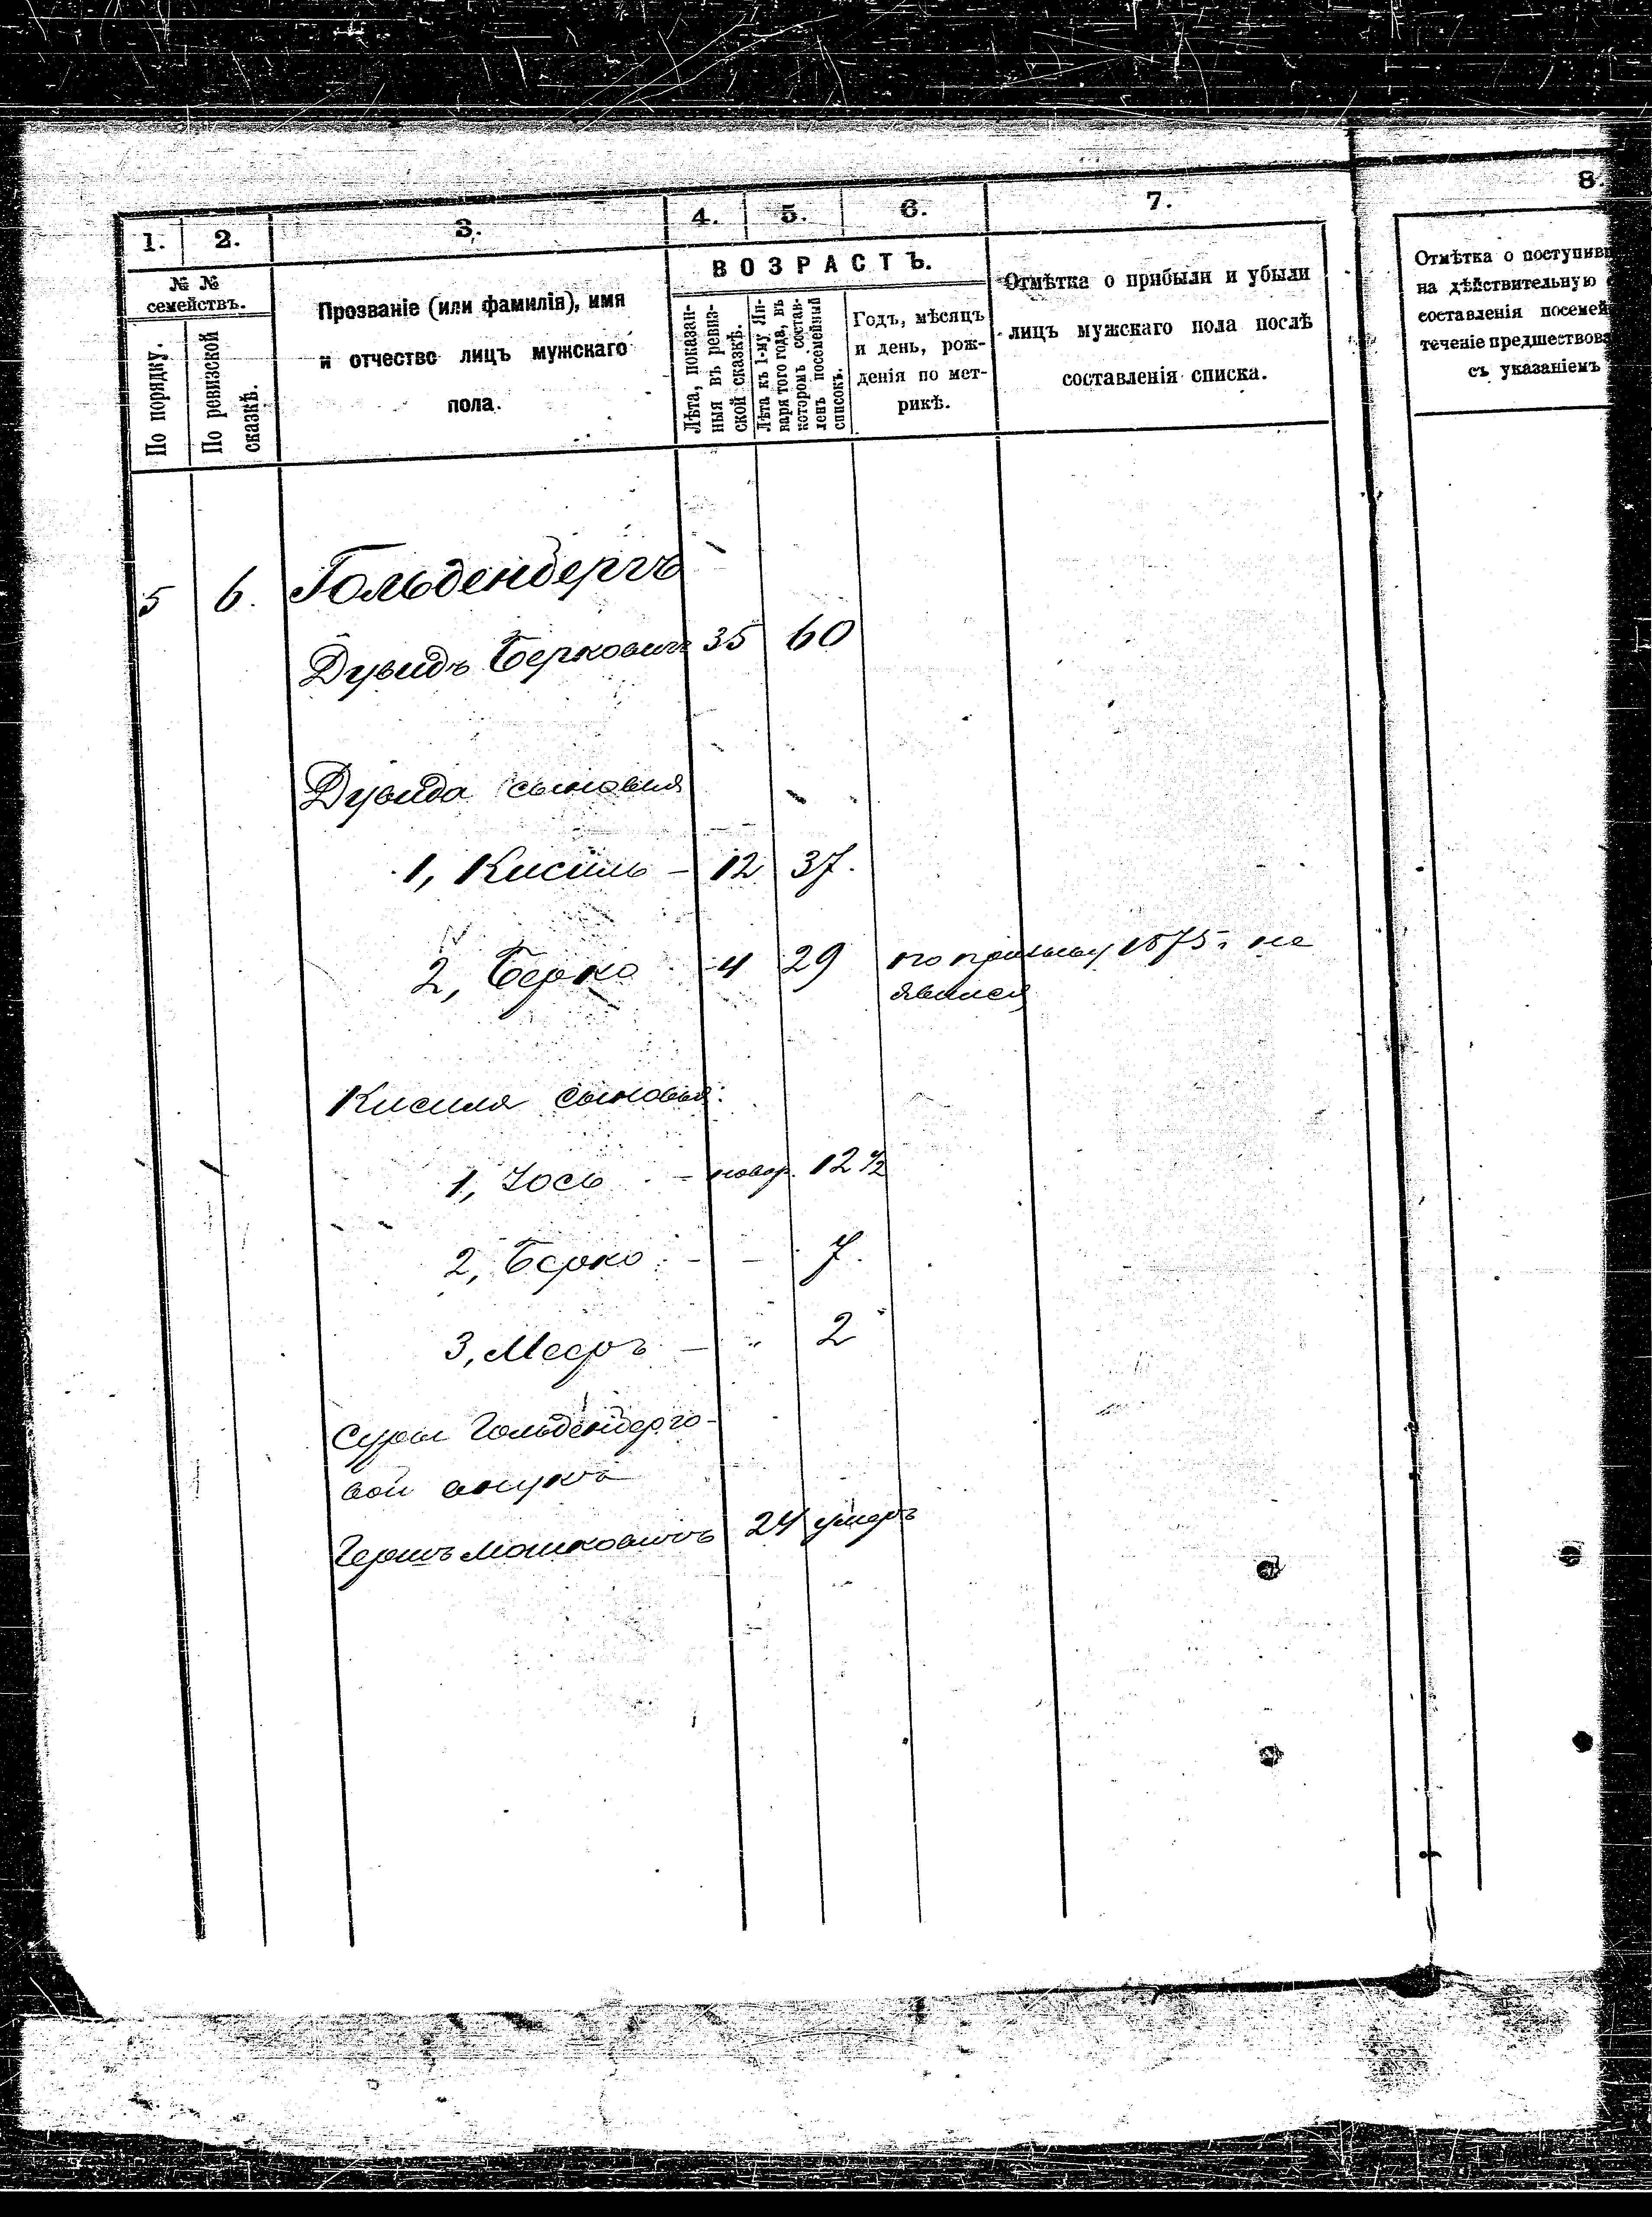 1. 2. 3. 4. 5. 6. 7. 8.
№ №
семействъ.
По порядку.
По ревизской
сказкѣ.
Прозваніе (или фамилія), имя
и отчество лицъ мужскаго
пола.
ВОЗРАСТЪ.
Лѣта, показан-
ныя въ ревиз-
ской сказкѣ.
Лѣта къ 1-му Ян-
варя того года, въ
которомъ состав-
ленъ посемейный
списокъ.
Годъ, мѣсяцъ
и день, рож-
денія по мет-
рикѣ.
Отмѣтка о прибыли и убыли
лицъ мужскаго пола послѣ
составленія списка.
Отмѣтка о поступивш
на дѣйствительную
составленія посемей
теченіе предшествова
съ указаніемъ
5 6. Гольденбергъ
Дувидъ Берковичъ 35 60
Дувида сыновья
1, Кисиль - 12 37.
2, Берко - 4 29 по призыву 1875 г. не
явился
Кисиля сыновья:
1, Іось - новор. 12 1/2
2, Берко - - 7.
3, Меер - " 2
Суры Гольденберго-
вой внукъ
Гершъ Мошковичъ 24 умеръ